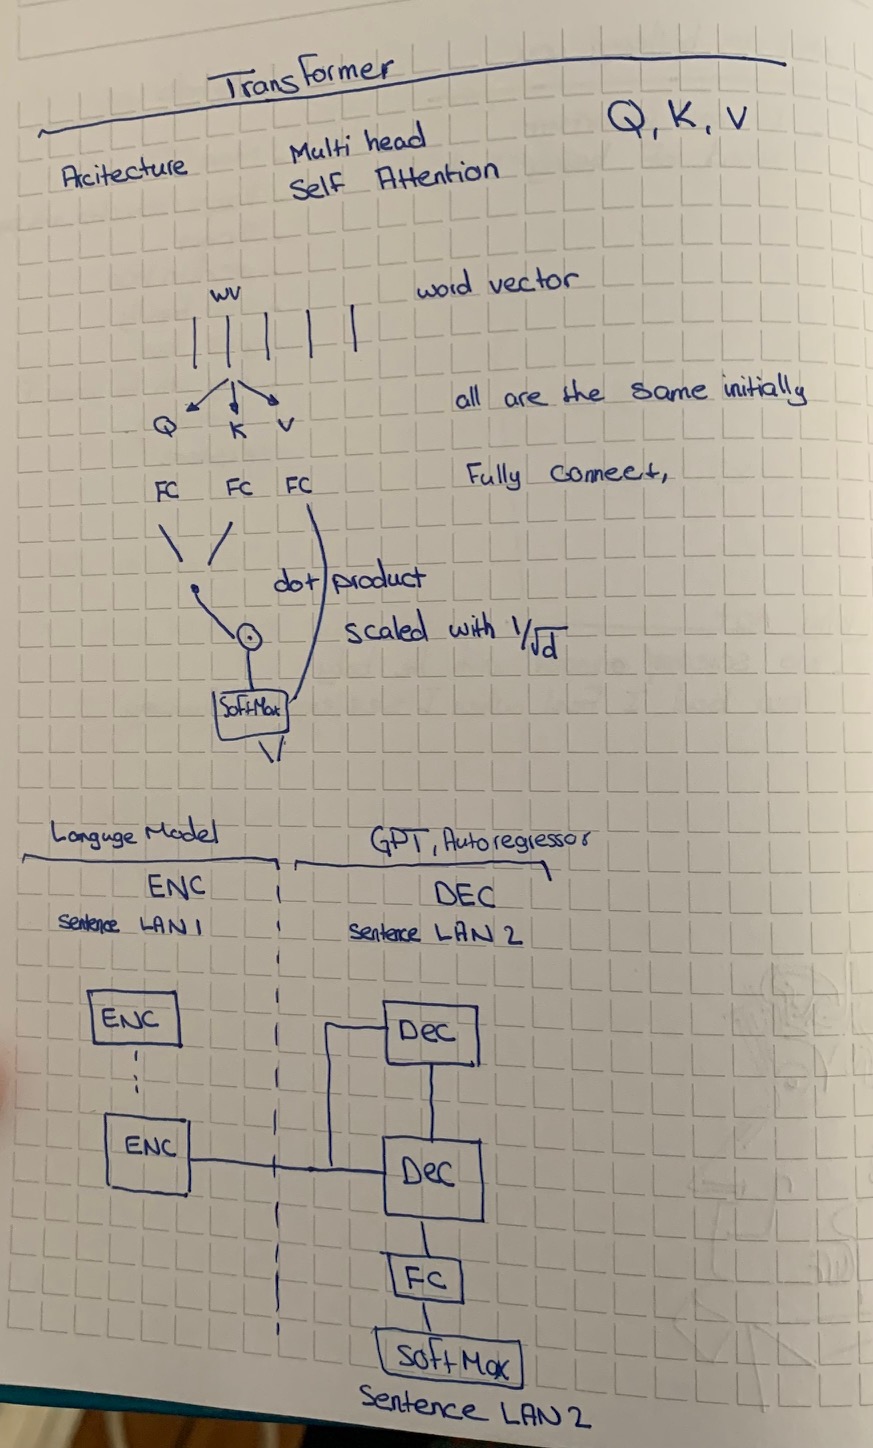 Transformer
Arcitecture
Multi head
Self Attention
Q, K, V
WV
word vector
Q K V
all are the same initially
FC FC FC
Fully connect,
dot product
scaled with 1/√d
SoftMax
V
Languge Model
GPT, Autoregressor
ENC
DEC
Sentence LAN1
Sentence LAN 2
ENC
Dec
ENC
Dec
FC
SoftMax
Sentence LAN2